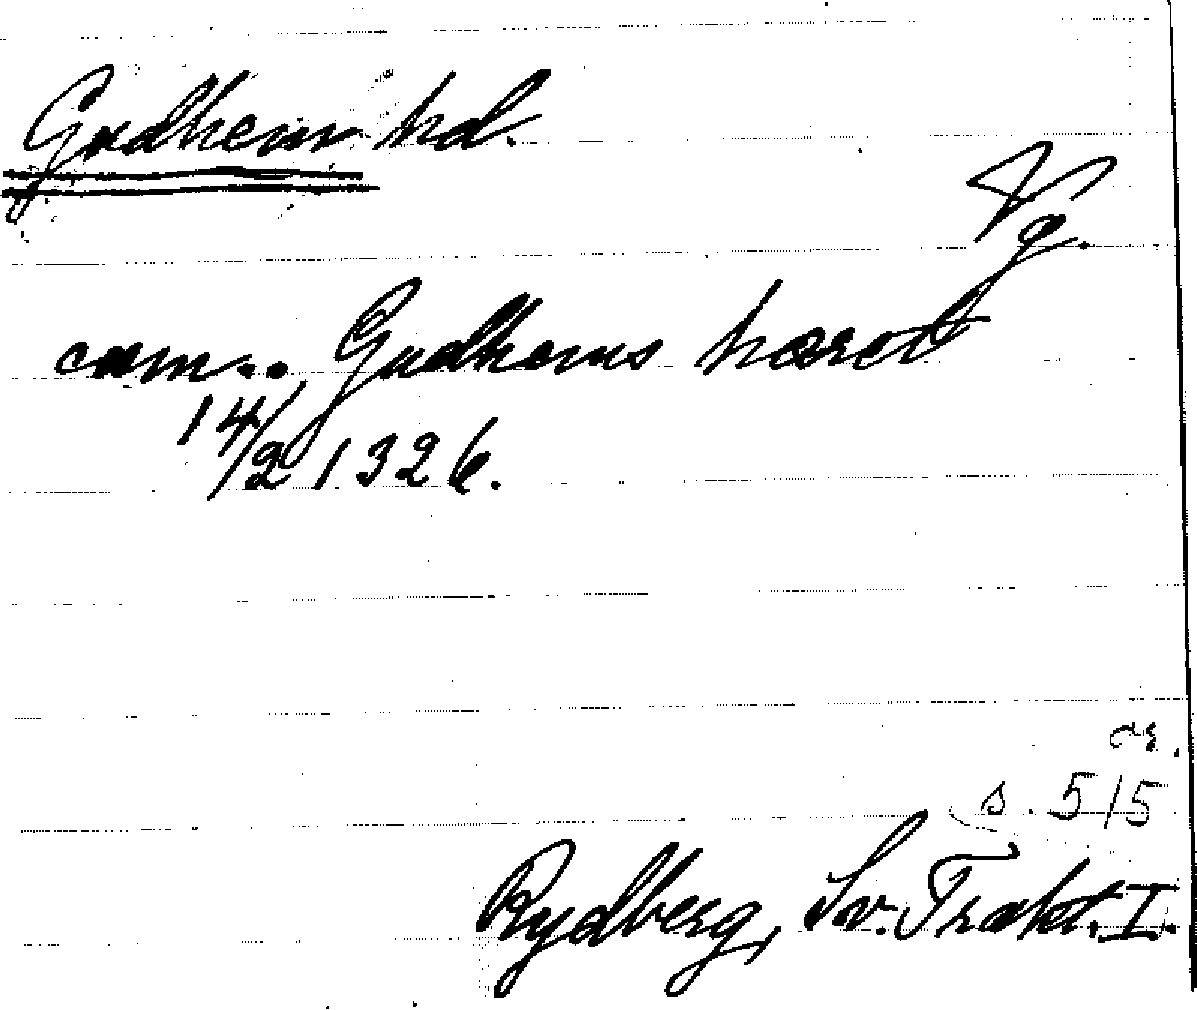 Gudhem hd.
Vg.
cum.. Gudhems hærot
14/2 1326.
s. 515
Rydberg, Sv. Trakt. I.